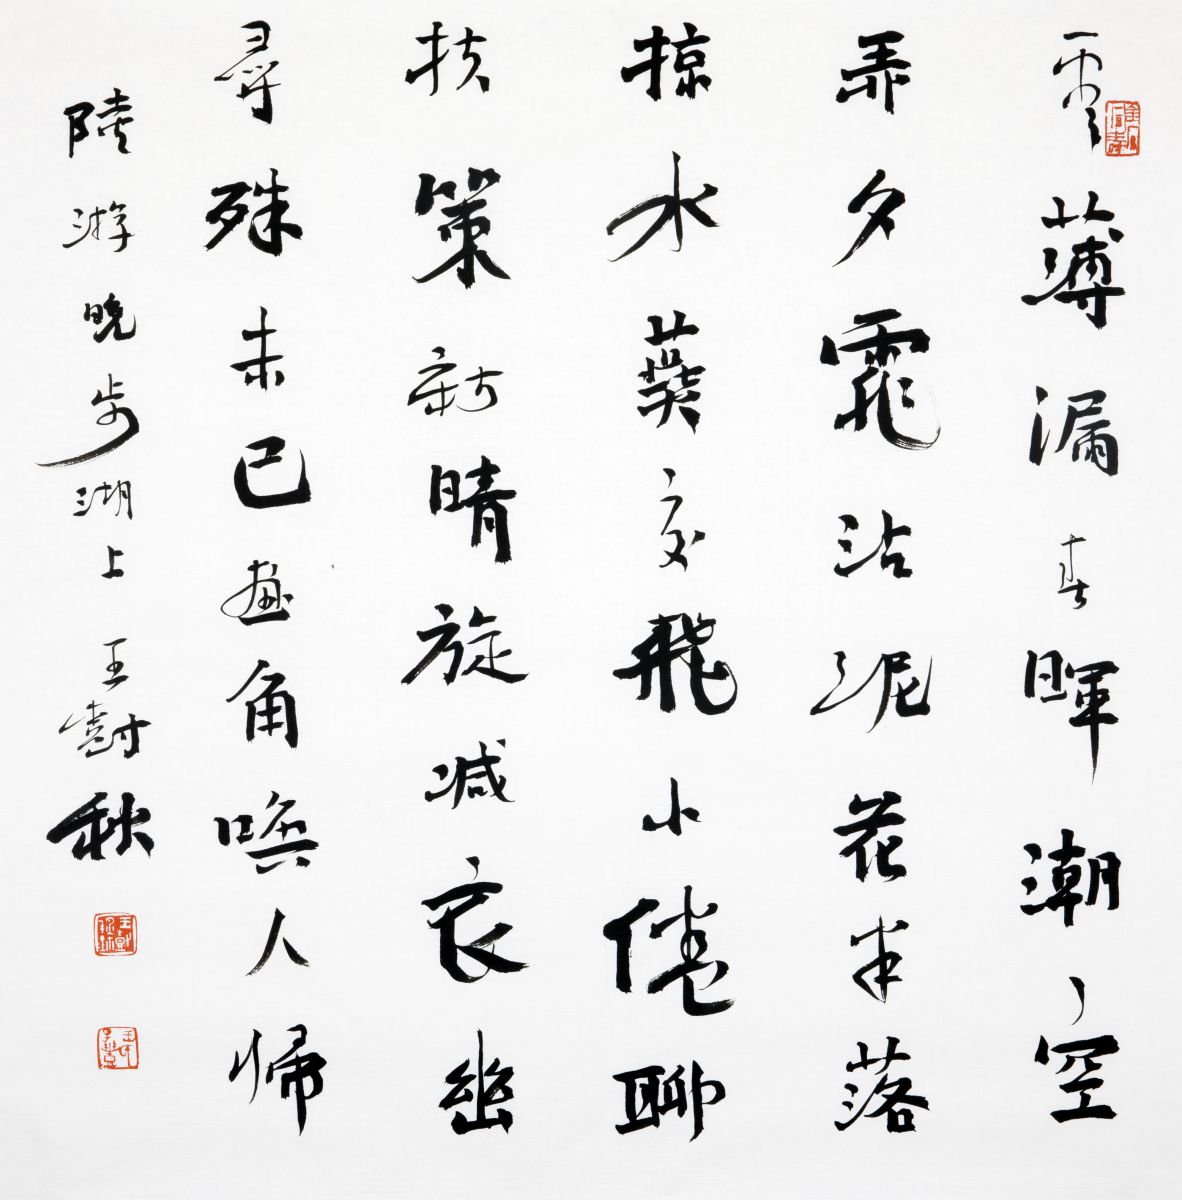 雲薄漏春暉潮空
弄夕霏沾泥花半落
掠水燕交飛小倦聊
扶策新晴旋减衣幽
尋殊未已畫角喚人帰
陸游晚步湖上 王 秋